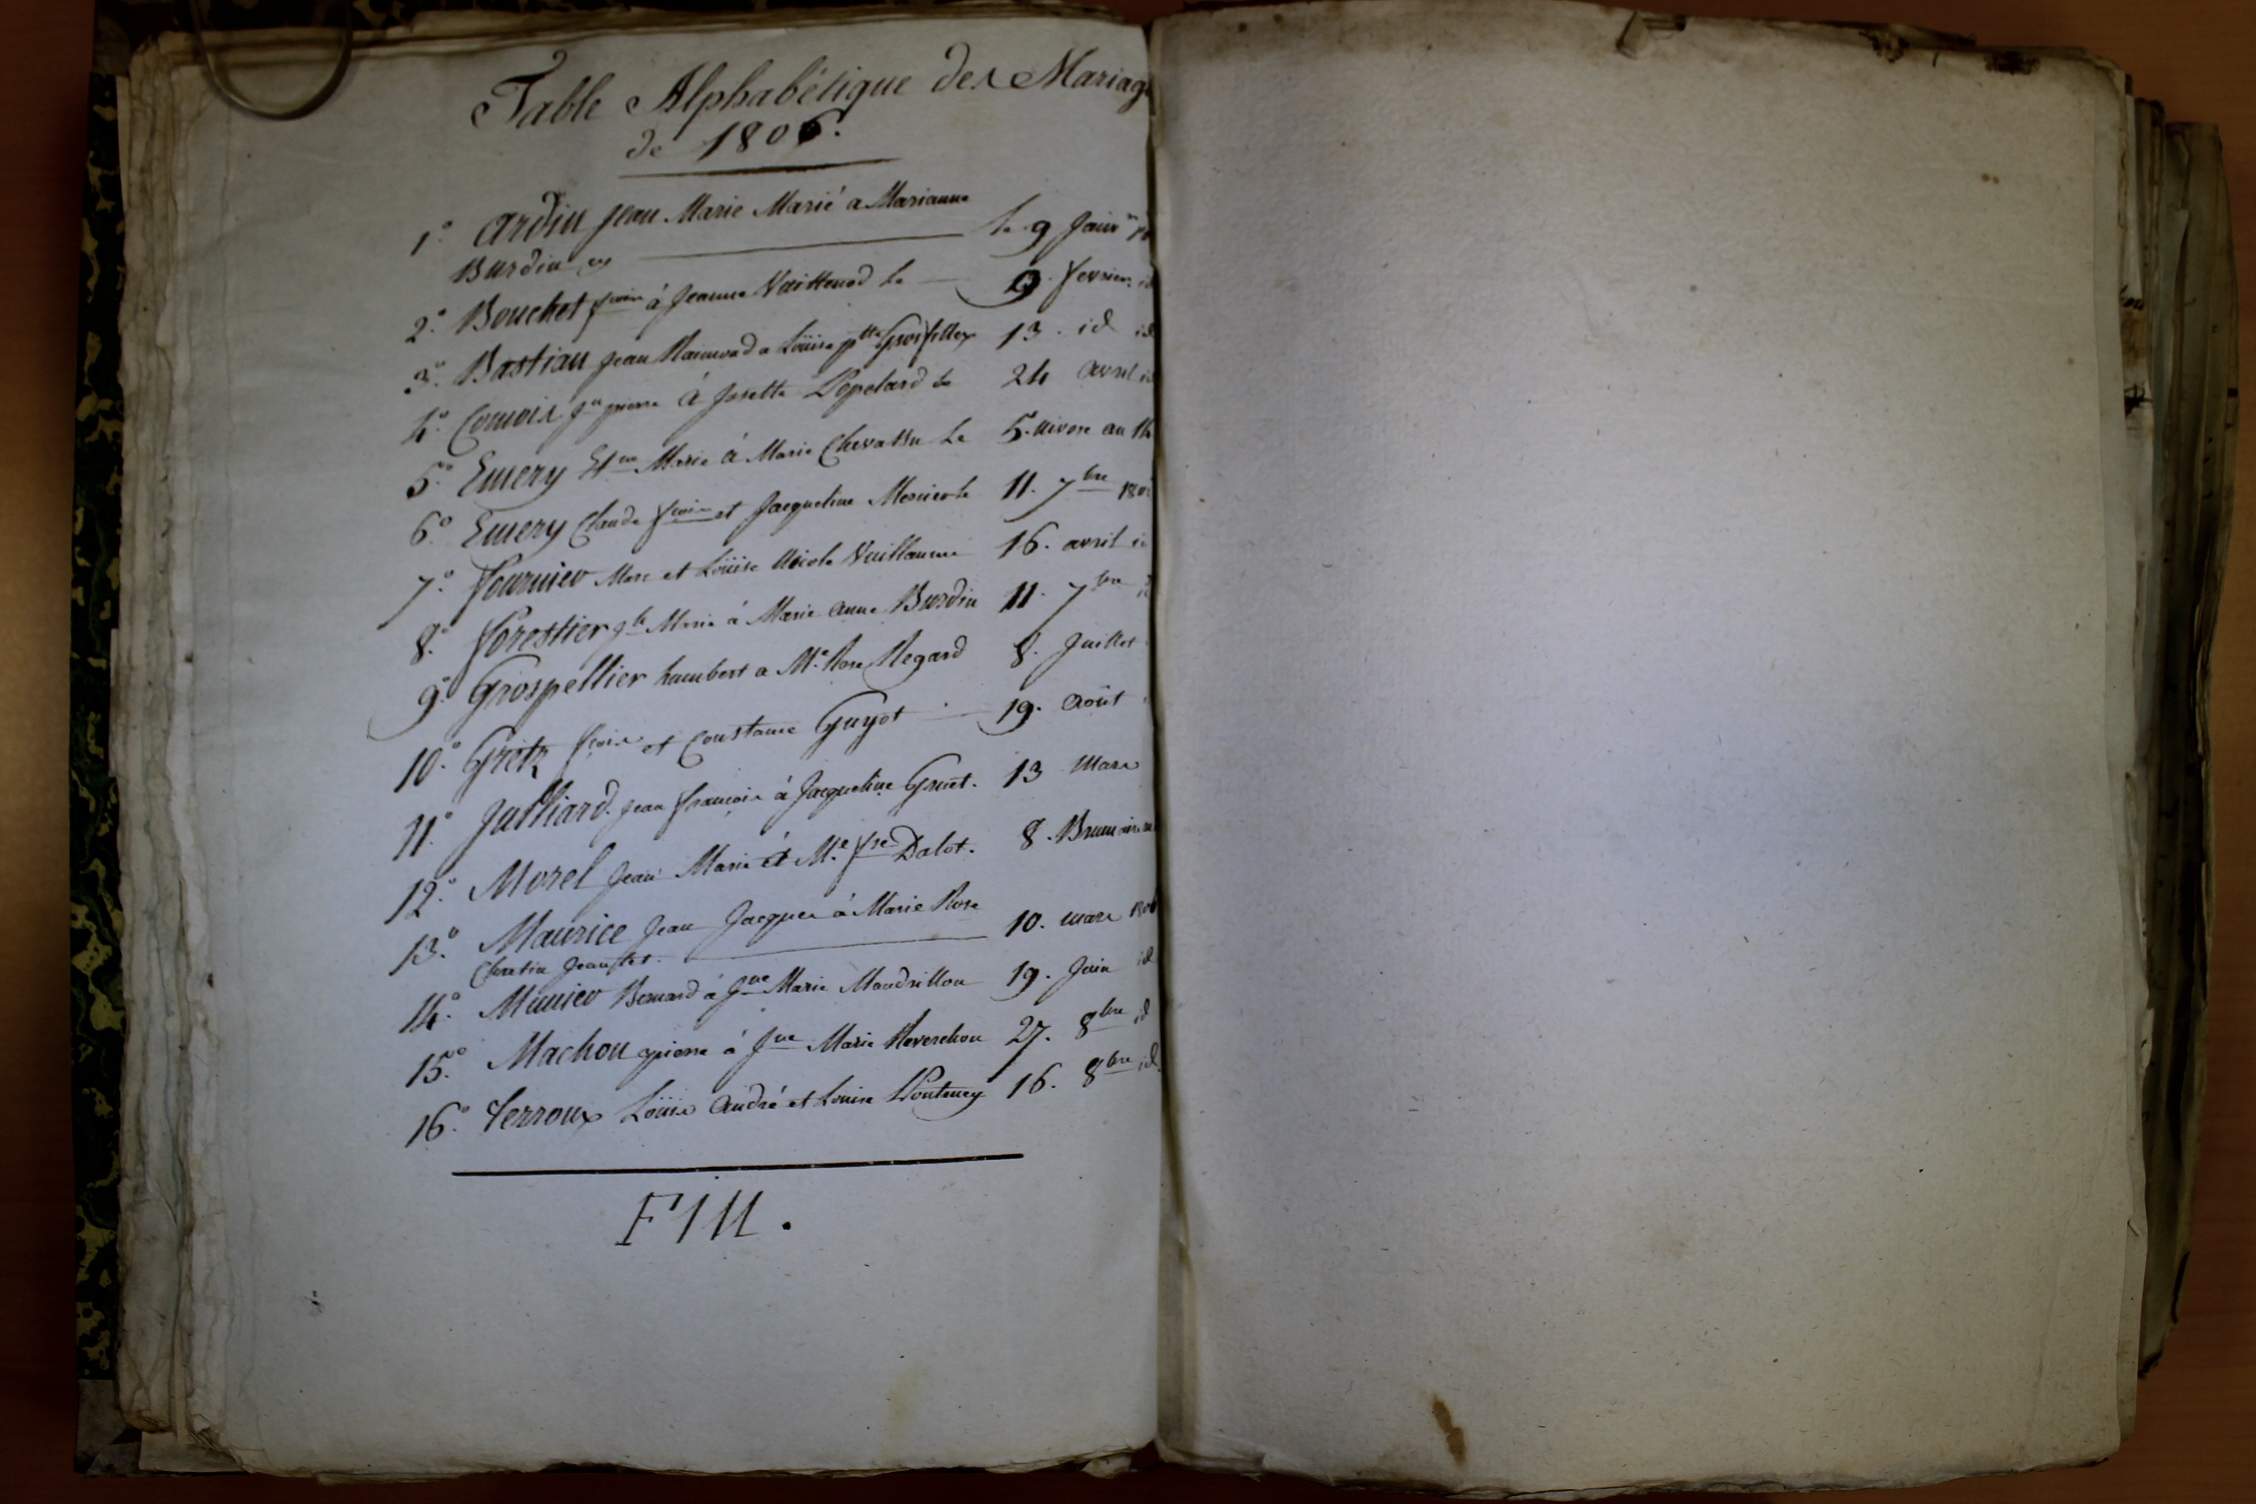 Table Alphabétique des Mariag
de 1806.
1.° Ardin Jean Marie Marié a Marianne
Burdin le 9 Janv.er
2.° Bouchet fcois à Jeanne Vuittenod le 9. fevrier id
3.° Bastian Jean Raimond a Loüise ptte Grosfillex 13. id id
4.° Comoix Jn pierre à Josette Popelard le 24 avril id
5.° Emery Etne Marie à Marie Chevassu le 5. nivose an 14
6.° Emery Claude fcois et Jacqueline Mermet le 11. 7bre 180
7.° fournier Marc et Loüise Nicole Vuillaume 16. avril id
8.° forestier Marie à Marie anne Burdin 11. 7bre
9.° Grospellier humbert a M.e Rose Regard 8. Juillet
10.° Gretz fcois et Constance Guyot 19. Août
11.° Julliard Jean françois à Jacqueline Gruet. 13 Mars
12.° Morel Jean Marie et M.e fse Dalot. 8. Brumaire
13.° Maurice Jean Jacques à Marie Rose
10. mars 1806
14.° Munier Bernard à Jne Marie Mandrillon 19. Juin id
15.° Machon pierre à Jne Marie Reverchon 27. 8bre id
16.° Perroux Loüis André et Louise Ponteney 16. 8bre id.
FIN.